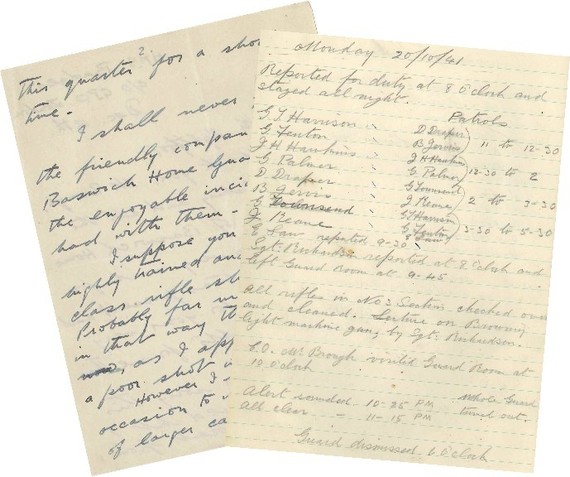 this quarter? for a sho
time -
I shall never
the friendly compan
Baswich Home Gua
the enjoyable inci
had with them -
I suppose you
highly trained and
class rifle sh
Probably far m
in that way th
as I app
a poor shot
However I
occasion to
of larger ca
Monday 20/10/41.
Reported for duty at 8 O'Clock and
stayed all night.
Patrols
G. T. Harrison
G. Fenton
J H Hawkins
G. Palmer
D. Draper
B. Jervis
G. Townsend
J. Reame
E Law reported 9-30
D Draper
B. Jervis 11 to 12-30
J. H Hawkins
G. Palmer 12-30 to 2
G Townsend
J Reame 2 to 3-30
G T Harrison
G. Fenton 3-30 to 5-30
E Law
Sgt. Richardson reported at 8 O'Clock and
left Guard Room at 9-45
All rifles in No 3 Section checked over
and cleaned. Lecture on Browning
light machine gun, by Sgt. Richardson.
C.O. Mr Brough visited Guard Room at
10 O'Clock
Alert sounded 10-25 PM whole Guard
All clear - 11-15 PM turned out.
Guard dismissed 6 O'Clock